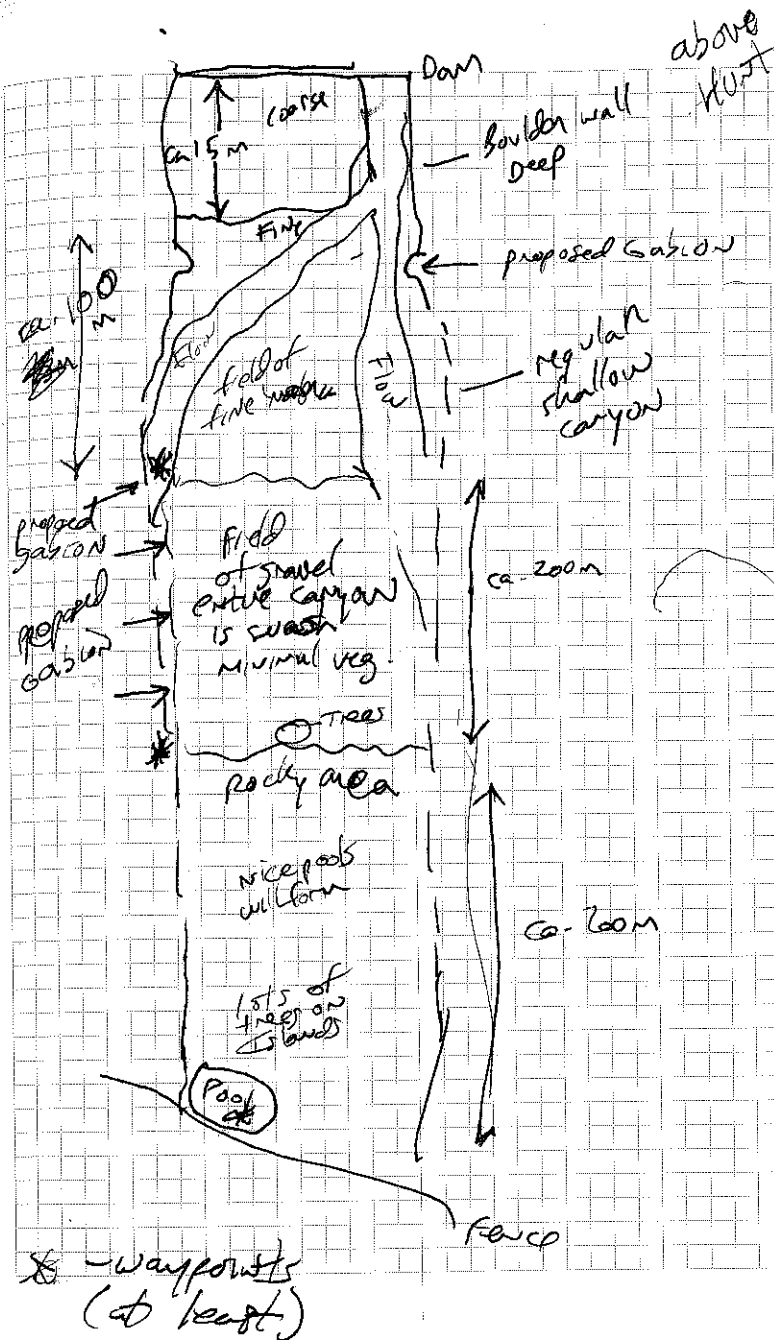 above
HUNT
Dam
coarse
ca 15 m
Boulder wall
Deep
Fine
proposed Gabion
ca. 100
m
Flow
field of
fine
Flow
regular
shallow
canyon
proposed
gabion
proposed
gabion
field
of gravel
entire canyon
is swash
minimal veg.
ca. 200m
Trees
Rocky area
Nice pools
will form
ca. 200m
lots of
trees on
Islands
Pool
Fence
* - waypoints
(at least)